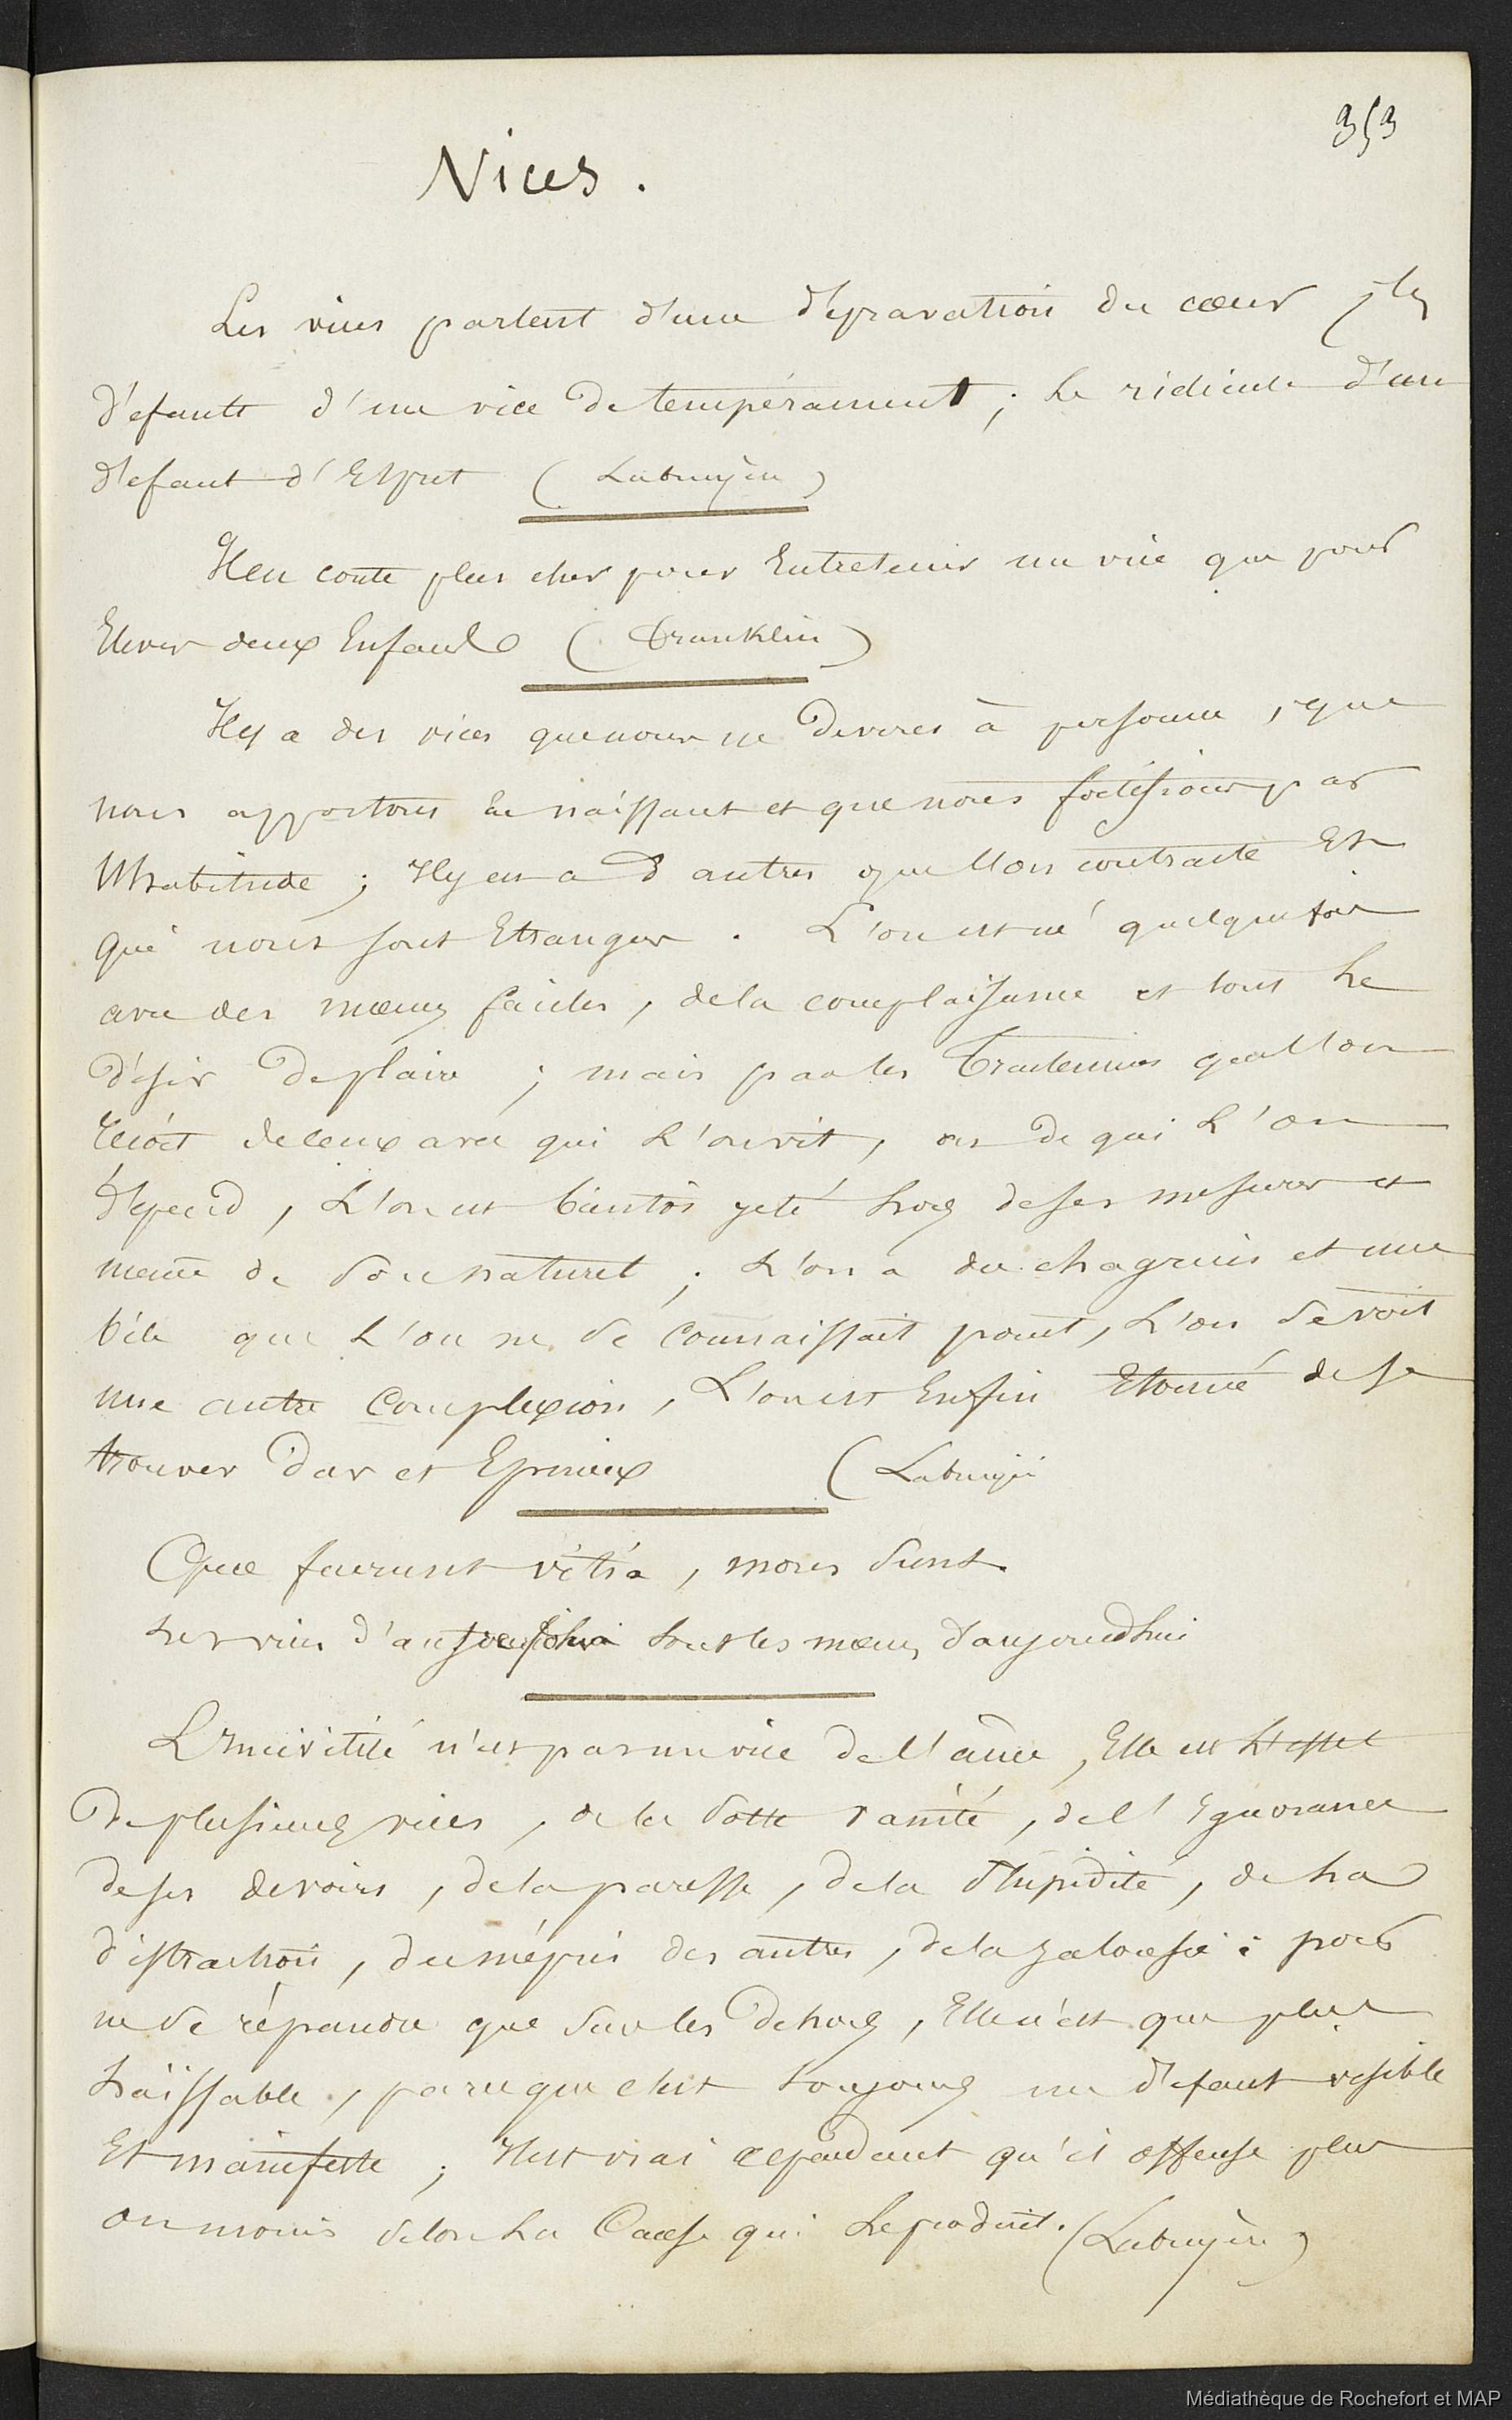 353
Vices.
Les vices partent d'une dépravation du cœur ; les
défauts d'un vice de tempérament ; le ridicule d'un
défaut d'Esprit ( Labruyère )
Il en coute plus cher pour Entretenir un vice que pour
Elever deux Enfants ( Franklin )
Il y a des vices que nous ne devons à personne , que
nous apportons En naissant et que nous fortifions par
l'habitude ; Il y en a d'autres que l'on contracte Et
qui nous sont Etrangers . L'on est né quelquefois
avec des mœurs faciles , de la complaisance et tout le
désir de plaire ; mais par les Traitemens que l'on
reçoit de ceux avec qui L'on vit , ou de qui L'on
dépend , L'on est bientôt jeté hors de ses mesures et
meme de Son naturel ; L'on a des chagrins et une
bile que L'on ne Se connaissait point , L'on Se voit
une autre Complexion , L'on est Enfin Etonné de se
trouver Dur et Epineux ( Labruyère
Quæ fuerunt vitia , mores Sunt
Les vices d'autrefois sont les mœurs d'aujourdhui
L'Incivilité n'est pas un vice de l'âme , Elle est l'effet
de plusieurs vices , de la Sotte vanité , de l'Ignorance
de ses devoirs , de la paresse , de la Stupidité , de La
distraction , du mépris des autres , de la jalousie : pour
ne Se répandre que Sur les Dehors , Elle n'est que plus
haïssable , parce que c'est toujours un défaut visible
Et manifeste ; Il est vrai cependant qu'il offense plus
ou moins Selon La Cause qui Le produit . ( Labruyère )
Médiathèque de Rochefort et MAP